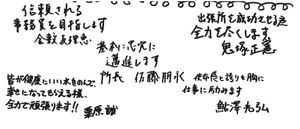 信頼される
事務業を目指します
出張所を成功させる為
全力を尽くします
基本に忠実に
邁進します
所長 佐藤朋永
皆が健康にいい水をのんで、
幸せになってもらえる様、
全力で頑張ります!!
栗原誠
使命感と誇りを胸に
仕事に励みます